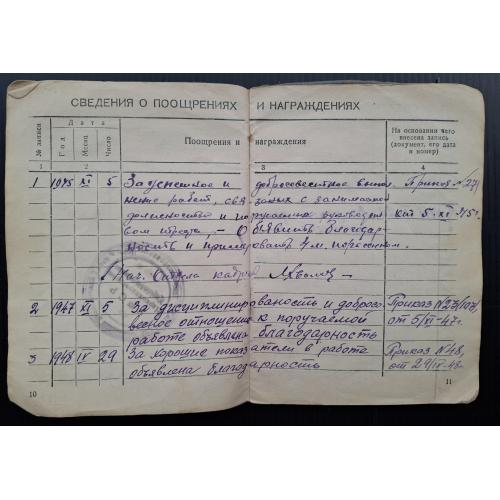 СВЕДЕНИЯ О ПООЩРЕНИЯХ И НАГРАЖДЕНИЯХ
№ записи
Дата
Год
Месяц
Число
Поощрения и награждения
На основании чего внесена запись (документ, его дата и номер)
1 2 3 4
1 1945 XI 5 За успешное и добросовестное выпол Приказ №
нение работ, свя занных с занимаемой
должностью и по кат 5. XI 45г.
Объявить благодар
ность и премировать
Нач. Отдела кадров
2 1947 XI 5 За дисциплинированность и доброcо Приказ №
вестное отношение к поручаемой от 5/XI-47г.
работе объявлена благодарность
3 1948 IV 29 За хорошие показатели в работе Приказ №48,
объявлена благодарность от 29/IV-48г.
10 11